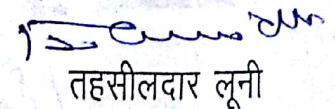 तहसीलदार लूनी